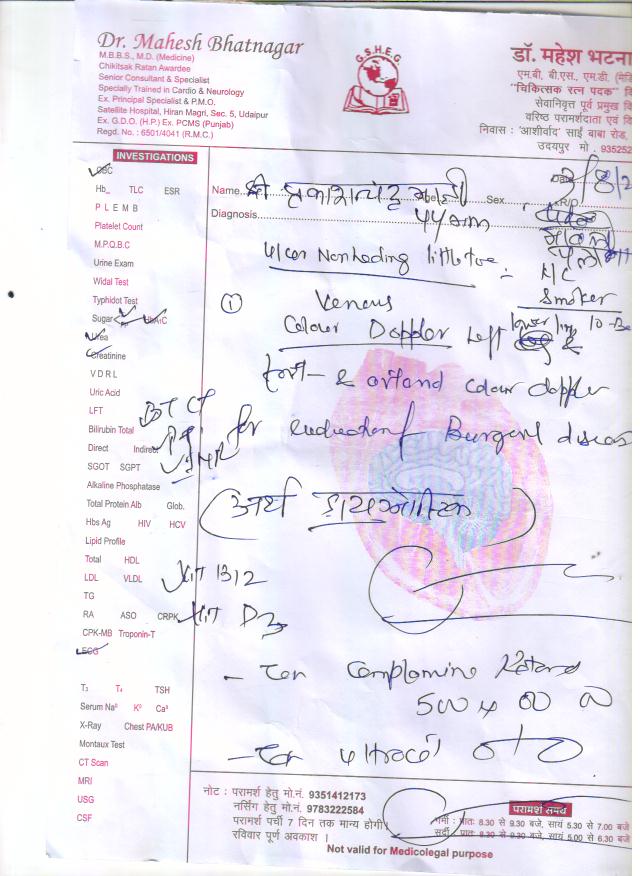 Dr. Mahesh Bhatnagar
M.B.B.S., M.D. (Medicine)
Chikitsak Ratan Awardee
Senior Consultant & Specialist
Specially Trained in Cardio & Neurology
Ex. Principal Specialist & P.M.O.
Satellite Hospital, Hiran Magri, Sec. 5, Udaipur
Ex. G.D.O. (H.P.) Ex. PCMS (Punjab)
Regd. No. : 6501/4041 (R.M.C.)
G.S.H.E.G
डॉ. महेश भटना
एम.बी. बी.एस., एम.डी. (मेडि
"चिकित्सक रत्न पदक" वि
सेवानिवृत पूर्व प्रमुख वि
वरिष्ठ परामर्शदाता एवं वि
निवास : 'आशीर्वाद' साईं बाबा रोड,
उदयपुर मो. 935252
INVESTIGATIONS
CBC
Hb_ TLC ESR
P L E M B
Platelet Count
M.P.Q.B.C
Urine Exam
Widal Test
Typhidot Test
Sugar HbA1C
Urea
Creatinine
V D R L
Uric Acid
LFT
Bilirubin Total
Direct Indirect
SGOT SGPT
Alkaline Phosphatase
Total Protein Alb Glob.
Hbs Ag HIV HCV
Lipid Profile
Total HDL
LDL VLDL
TG
RA ASO CRPK
CPK-MB Troponin-T
ECG
T3 T4 TSH
Serum Na⁰ K⁰ Ca⁰
X-Ray Chest PA/KUB
Montaux Test
CT Scan
MRI
USG
CSF
BT CT
Vit B12
Vit D3
Name Sex Date
Diagnosis R/O
Non healing little toe
H/C
Smoker
① Venous
Colour Doppler Left lower limb
& arterial colour doppler
for evaluation of Burgers diseas
अर्थ डायग्नोस्टिक
- Tab Complamina Retard
500
- Tab
नोट : परामर्श हेतु मो.नं. 9351412173
नर्सिंग हेतु मो.नं. 9783222584
परामर्श पर्ची 7 दिन तक मान्य होगी।
रविवार पूर्ण अवकाश ।
परामर्श समय
गर्मी : प्रातः 8.30 से 9.30 बजे, सायं 5.30 से 7.00 बजे
सर्दी : प्रातः 8.30 से 9.30 बजे, सायं 5.00 से 6.30 बजे
Not valid for Medicolegal purpose